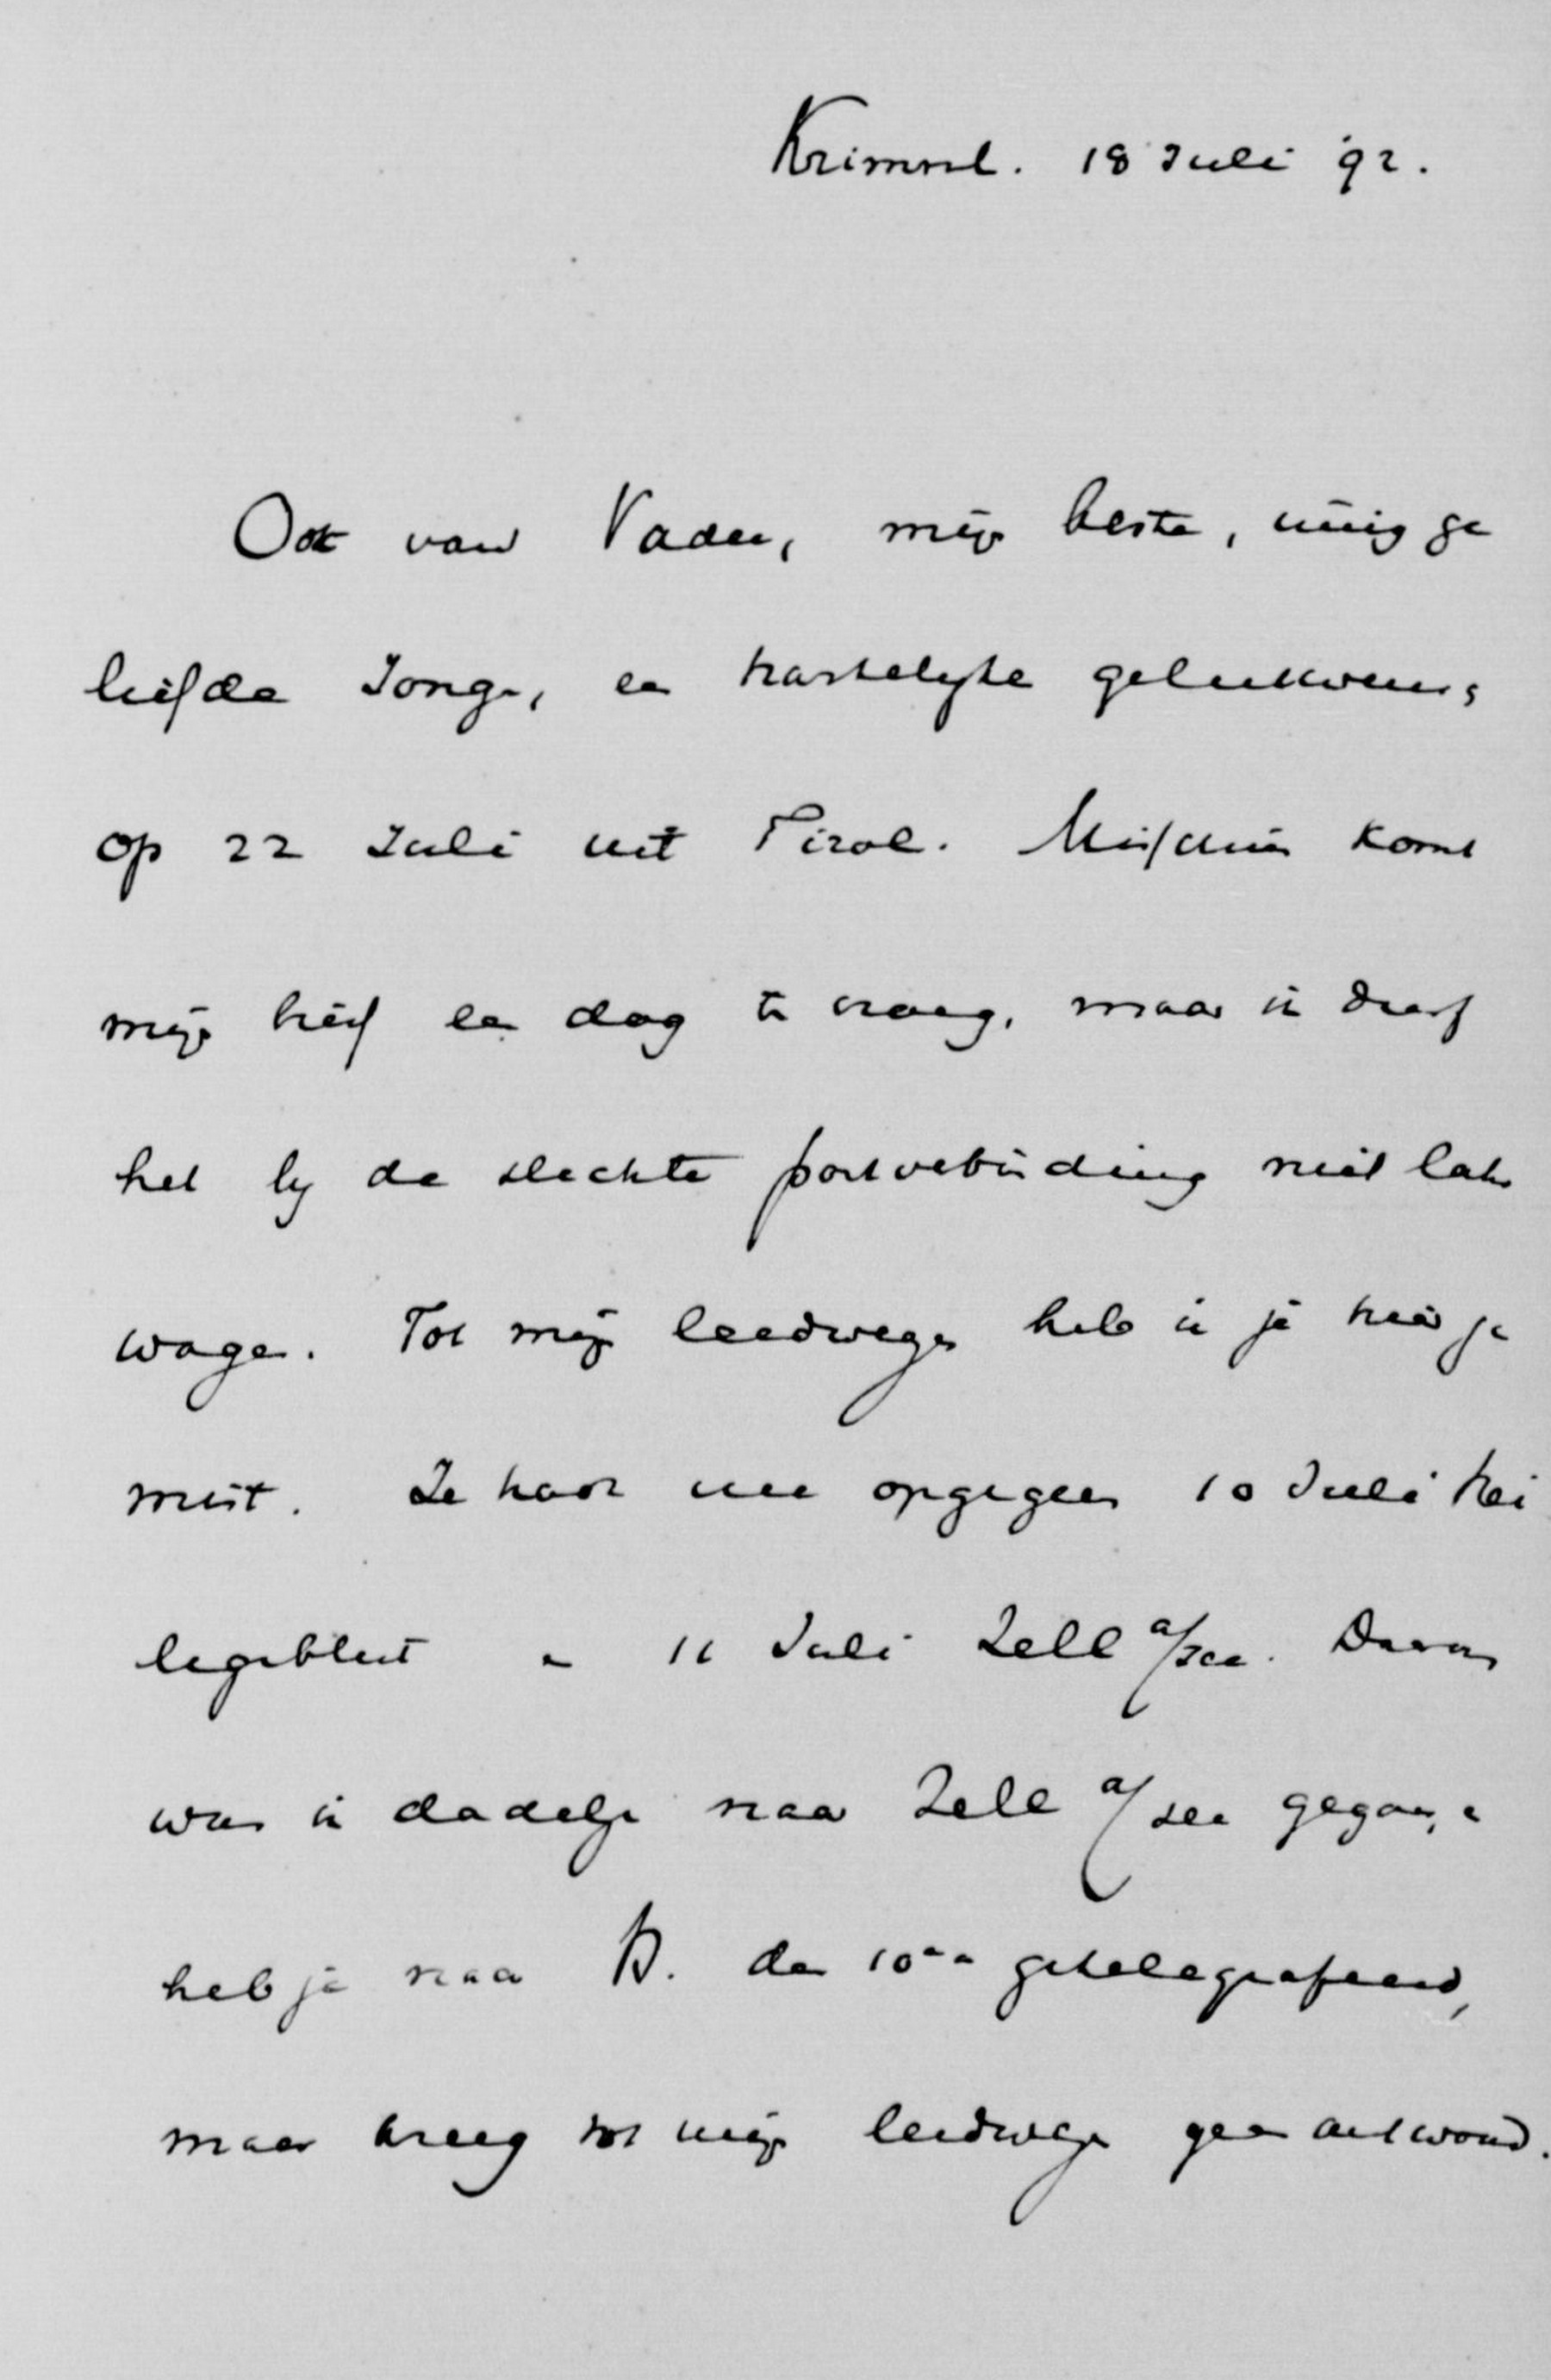 Krimml. 18 Juli '92.
Ook van Vader, mijn beste, innig ge
liefde Jongen, een hartelyke gelukwensch
op 22 Juli uit Tirol. Misschien komt
mijn brief een dag te vroeg, maar ik durf
het by de slechte postverbinding niet later
wagen. Tot mijn leedwezen heb ik je hier ge
mist. Je hadt me opgegeven 10 Juli Hei
ligenblut en 11 Juli Zell a/See. Daarom
was ik dadelijk naar Zell a/See gegaan, en
heb je naar H. den 10den getelegrafeerd,
maar kreeg tot mijn leedwezen geen antwoord.